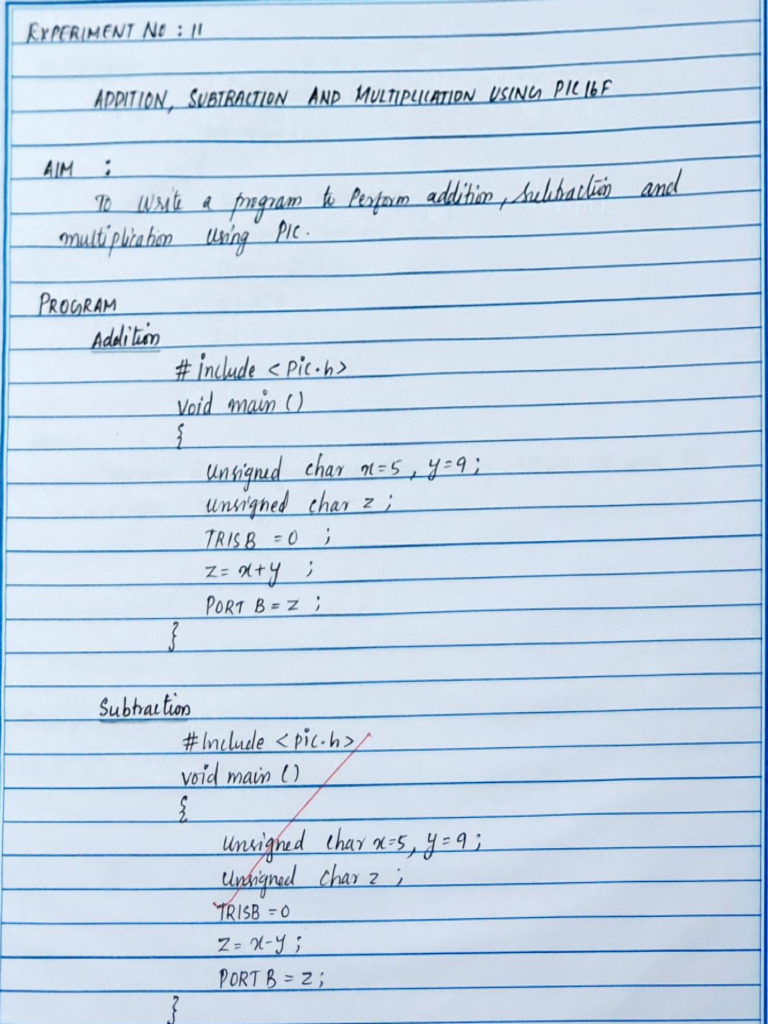 EXPERIMENT NO : 11
ADDITION, SUBTRACTION AND MULTIPLICATION USING PIC 16F
AIM :
To write a program to Perform addition, subtraction and
multiplication using PIC.
PROGRAM
Addition
# include <pic.h>
void main ()
{
unsigned char x=5, y=9;
unsigned char z ;
TRISB = 0 ;
z= x+y ;
PORT B = z ;
}
Subtraction
#Include <pic.h>
void main ()
{
Unsigned char x=5, y=9;
Unsigned char z ;
TRISB = 0
z= x-y ;
PORT B = z ;
}